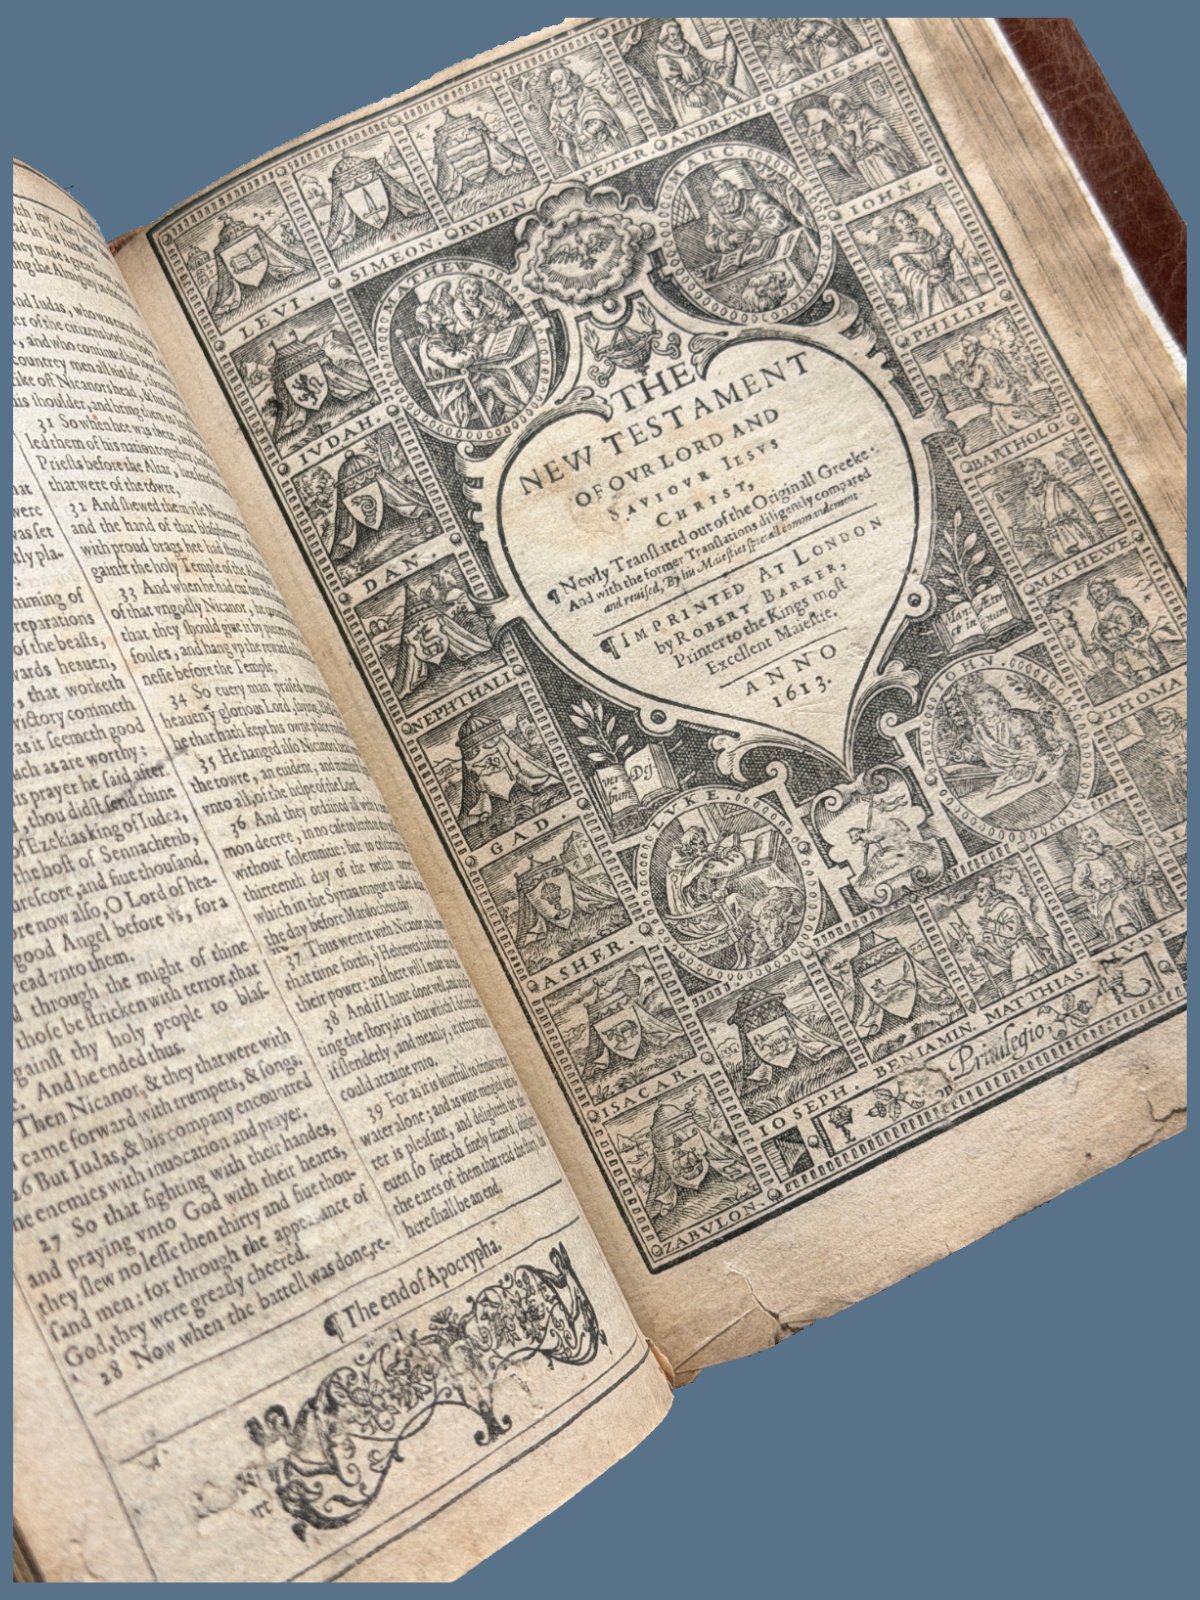 with ioy, they
and in his
ney made a great
ing the Almighty
and Iudas, who was
er of the citizens both in body
, and who continued his
countrey men all his life,
ike off Nicanors head, & his
his shoulder, and bring them to
31 So when hee was there, and
led them of his nation together, and
Priests before the Altar, hee sent
that were of the towre,
32 And shewed them vile Nicanors
and the hand of that blasphemer
with proud brags hee had stretched
gainst the holy Temple of the
33 And when he had cut out the
of that vngodly Nicanor, he
that they should giue it by pieces vnto
foules, and hang vp the reward of
nesse before the Temple.
34 So euery man praised towards
heauen y glorious Lord, saying,
he that hath kept his owne place
35 He hanged also Nicanors head
the towre, an euident, and manifest
vnto all, of the helpe of the Lord.
36 And they ordained all with a
mon decree, in no case to let that day
without solemnitie: but to
thirteenth day of the twelfth
which in the Syrian tongue is called
the day before Mardocheus day.
37 Thus went it with Nicanor, and
that time forth, y Hebrewes had
their power: and here will I make
38 And if I haue done well, and
ting the story, it is that which I
if slenderly, and meanly, it is that
could attaine vnto.
39 For as it is hurtfull to drinke
water alone; and as wine mingled
ter is pleasant, and delighteth the
euen so speech finely framed,
the eares of them that read the story.
here shall be an end.
hat
were
was set
tly pla-
:
mming of
reparations
of the beasts,
wards heauen,
, that worketh
victory commeth
as it seemeth good
uch as are worthy:
is prayer he said after
, thou didst send thine
of Ezekias king of Iudea,
the host of Sennacherib,
urescore, and fiue thousand.
re now also, O Lord of hea-
good Angel before vs, for a
read vnto them.
d through the might of thine
those be stricken with terror, that
gainst thy holy people to blas-
And he ended thus.
Then Nicanor, & they that were with
came forward with trumpets, & songs.
26 But Iudas, & his company encountred
he enemies with inuocation and prayer.
27 So that fighting with their handes,
and praying vnto God with their hearts,
they slew no lesse then thirty and fiue thou-
sand men: for through the appearance of
God, they were greatly cheered.
28 Now when the battell was done, re-
¶ The end of Apocrypha.
LEVI.
SIMEON.
RVBEN.
PETER
ANDREWE
IAMES.
IOHN.
PHILIP.
BARTHOLO:
MATHEWE.
THOMA
IVDE
MATTHIAS.
BENIAMIN.
IOSEPH.
ZABVLON.
ISACAR.
ASHER.
GAD.
NEPHTHALI
DAN.
IVDAH.
MATHEW.
MARC.
LVKE.
IOHN.
THE
NEW TESTAMENT
OF OVR LORD AND
SAVIOVR IESVS
CHRIST,
¶ Newly Translated out of the Originall Greeke:
And with the former Translations diligently compared
and reuised, By his Maiesties speciall commandement
¶ IMPRINTED AT LONDON
by ROBERT BARKER,
Printer to the Kings most
Excellent Maiestie.
ANNO
1613.
ver Dei
bum
Man: Æter
et in num
Priuilegio